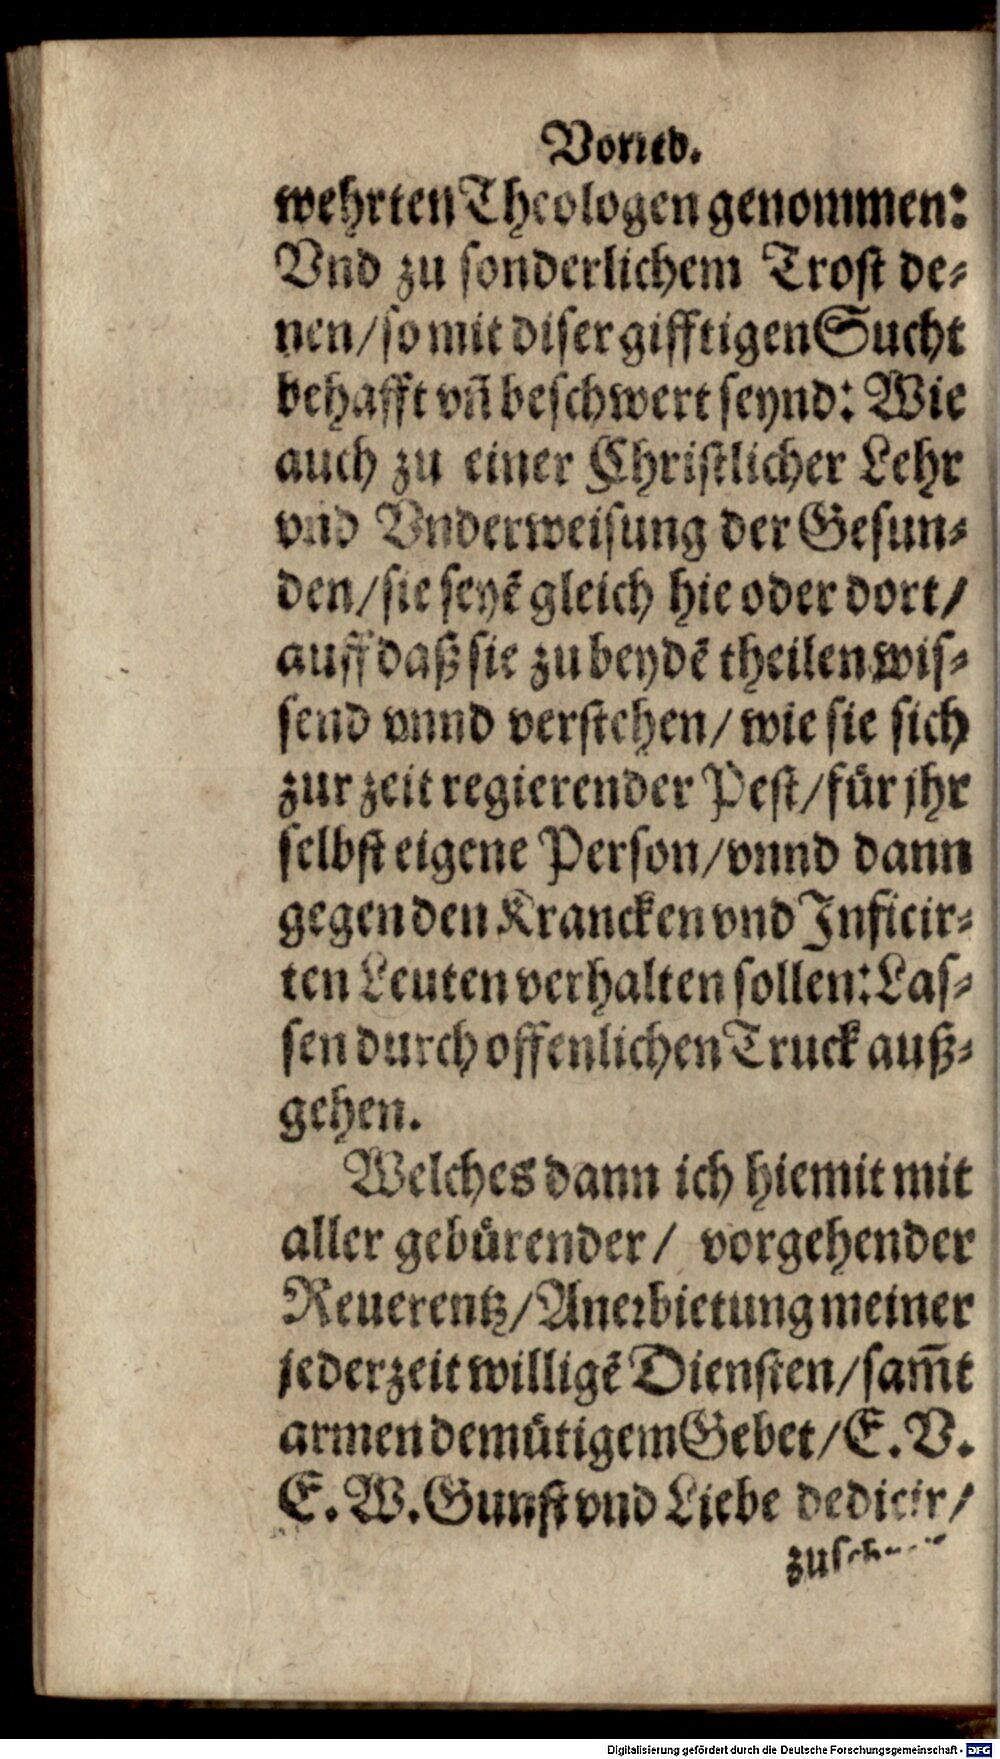 Vorred.
wehrten Theologen genommen:
Vnd zu sonderlichem Trost de-
nen/so mit diser gifftigen Sucht
behafft vñ beschwert seynd: Wie
auch zu einer Christlicher Lehr
vnd Vnderweisung der Gesun-
den/sie seyẽ gleich hie oder dort/
auff daß sie zu beydẽ theilen wis-
send vnnd verstehen/ wie sie sich
zur zeit regierender Pest/für jhr
selbst eigene Person/vnnd dann
gegen den Krancken vnd Inficir-
ten Leuten verhalten sollen: Las-
sen durch offenlichen Truck auß-
gehen.
Welches dann ich hiemit mit
aller gebürender/ vorgehender
Reuerentz/Anerbietung meiner
jederzeit willigẽ Diensten/sam̃t
armen demütigem Gebet/E. V.
E. W. Gunst vnd Liebe dedicir/
Digitalisierung gefördert durch die Deutsche Forschungsgemeinschaft - DFG